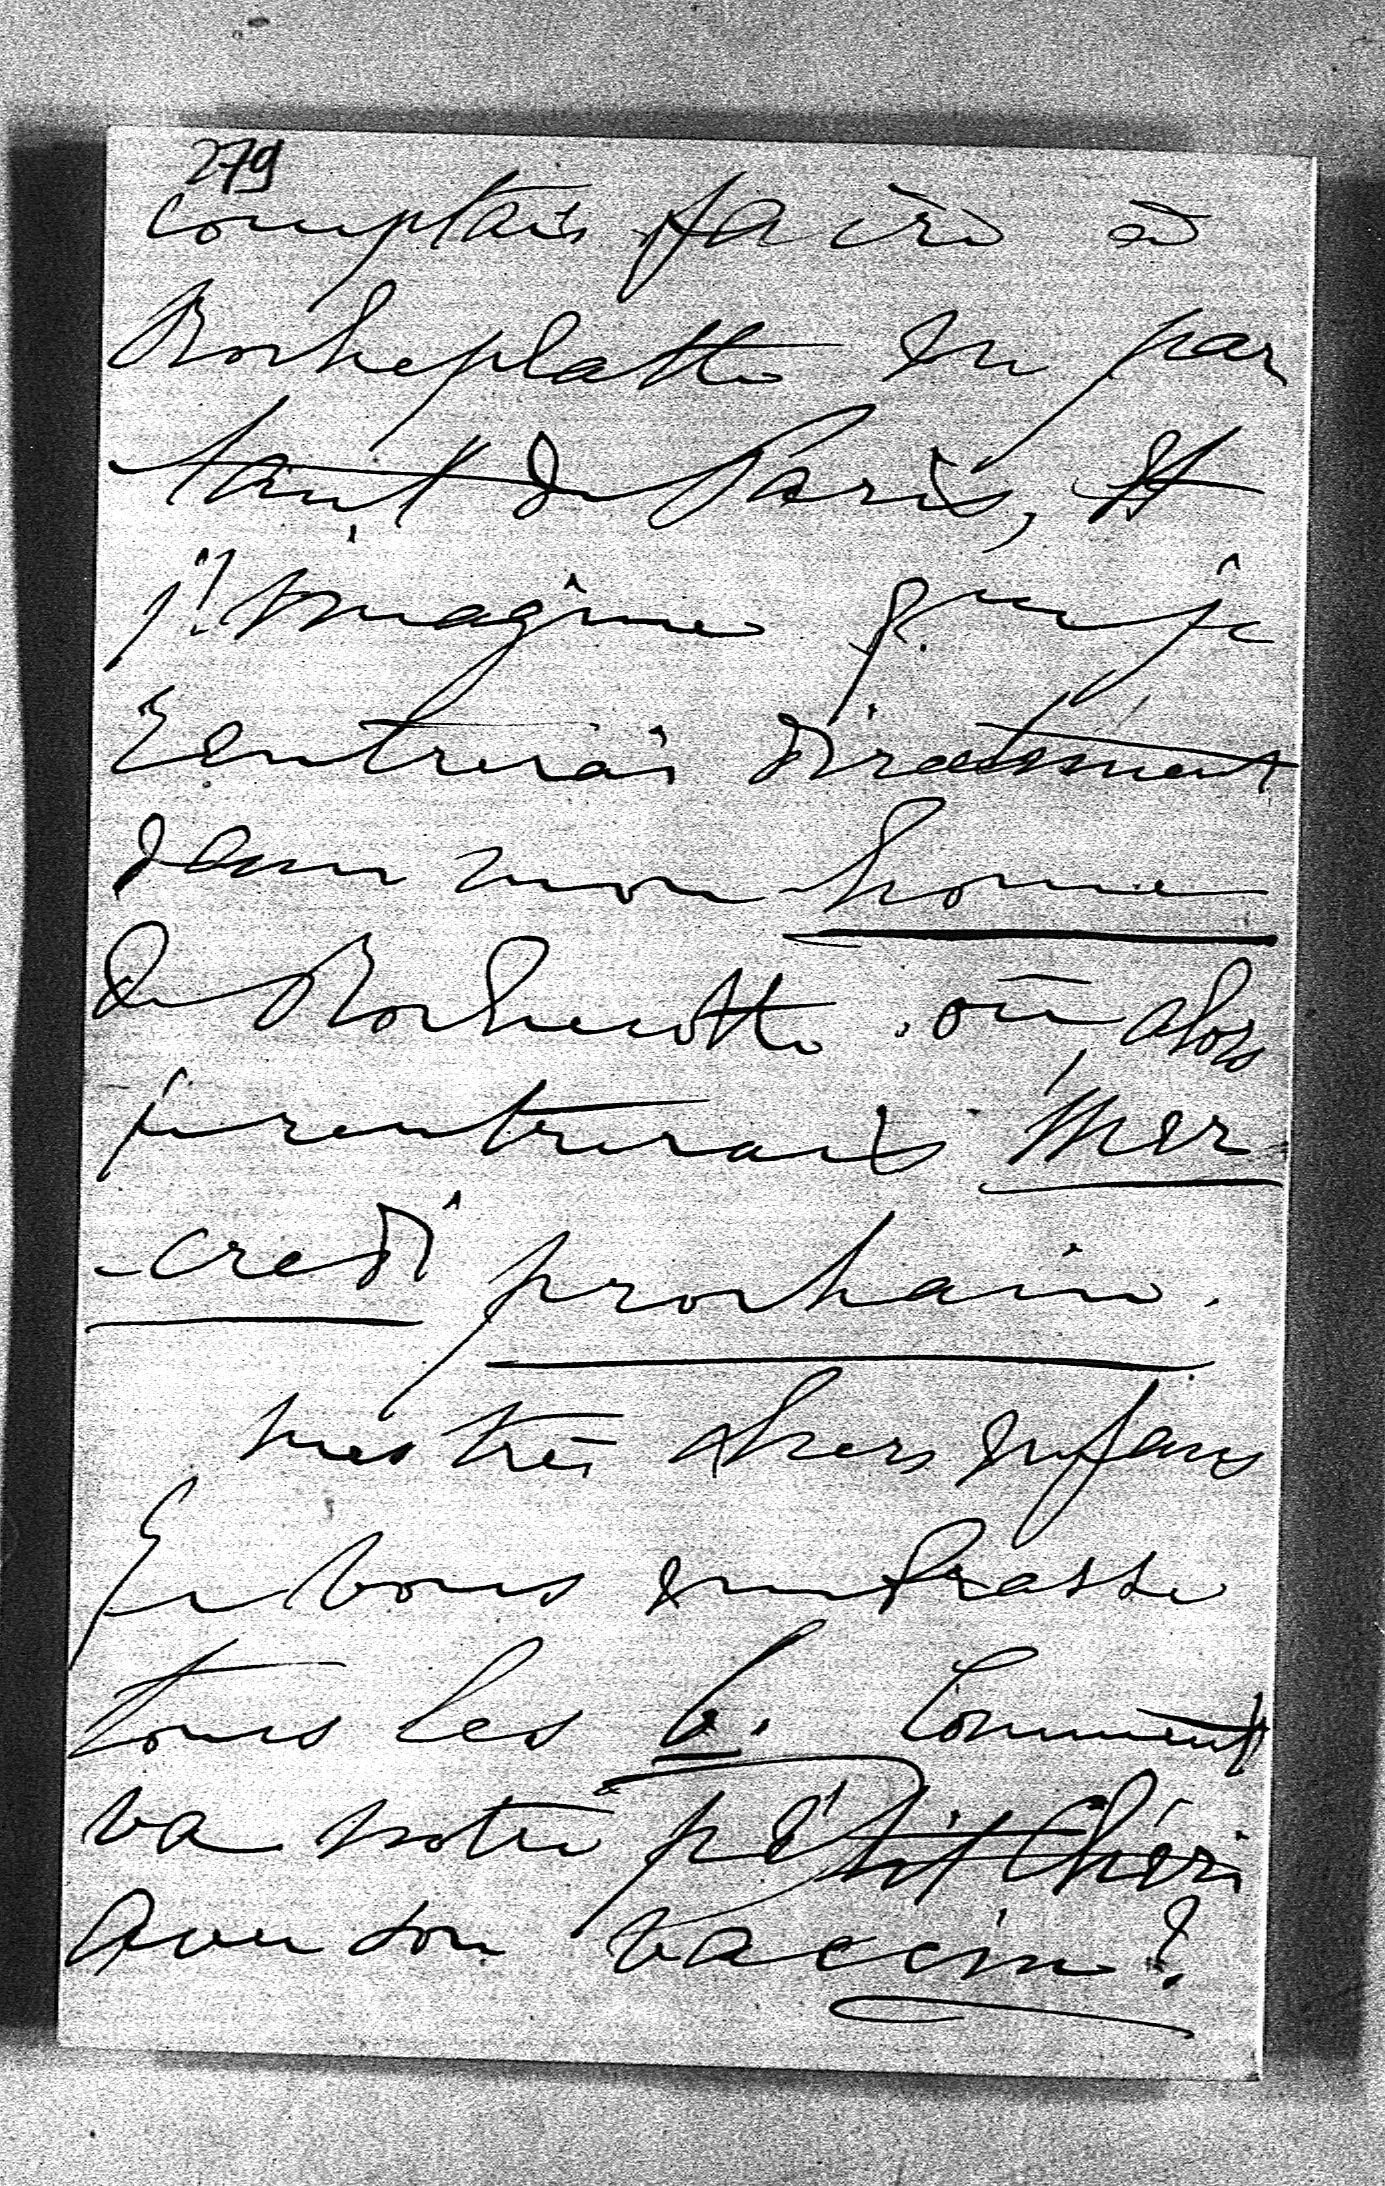 279
comptais faire à
Rocheplatte en par
tant de Paris, et
j'imagine que je
rentrerai directement
dans mon home
de Rochecotte où alors
je rentrerais Mer
-credi prochain.
mes très chers enfans
Je vous embrasse
tous les 6. Comment
va notre petit Chéri
avec son vaccin?